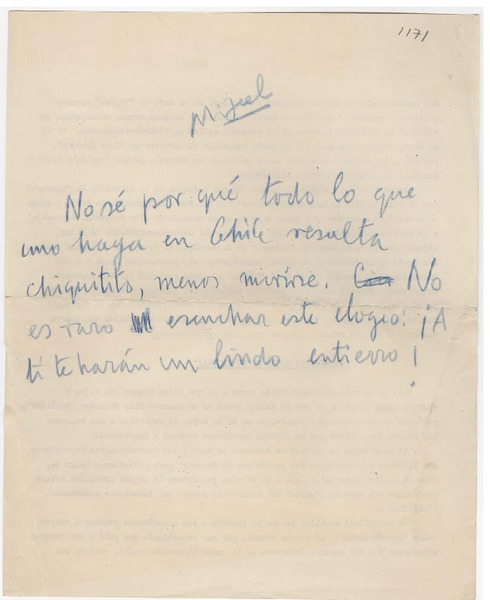 1171
Miguel
No sé por qué todo lo que
uno haga en Chile resulta
chiquitito, menos morirse. No
es raro escuchar este elogio: ¡A
ti te harán un lindo entierro!